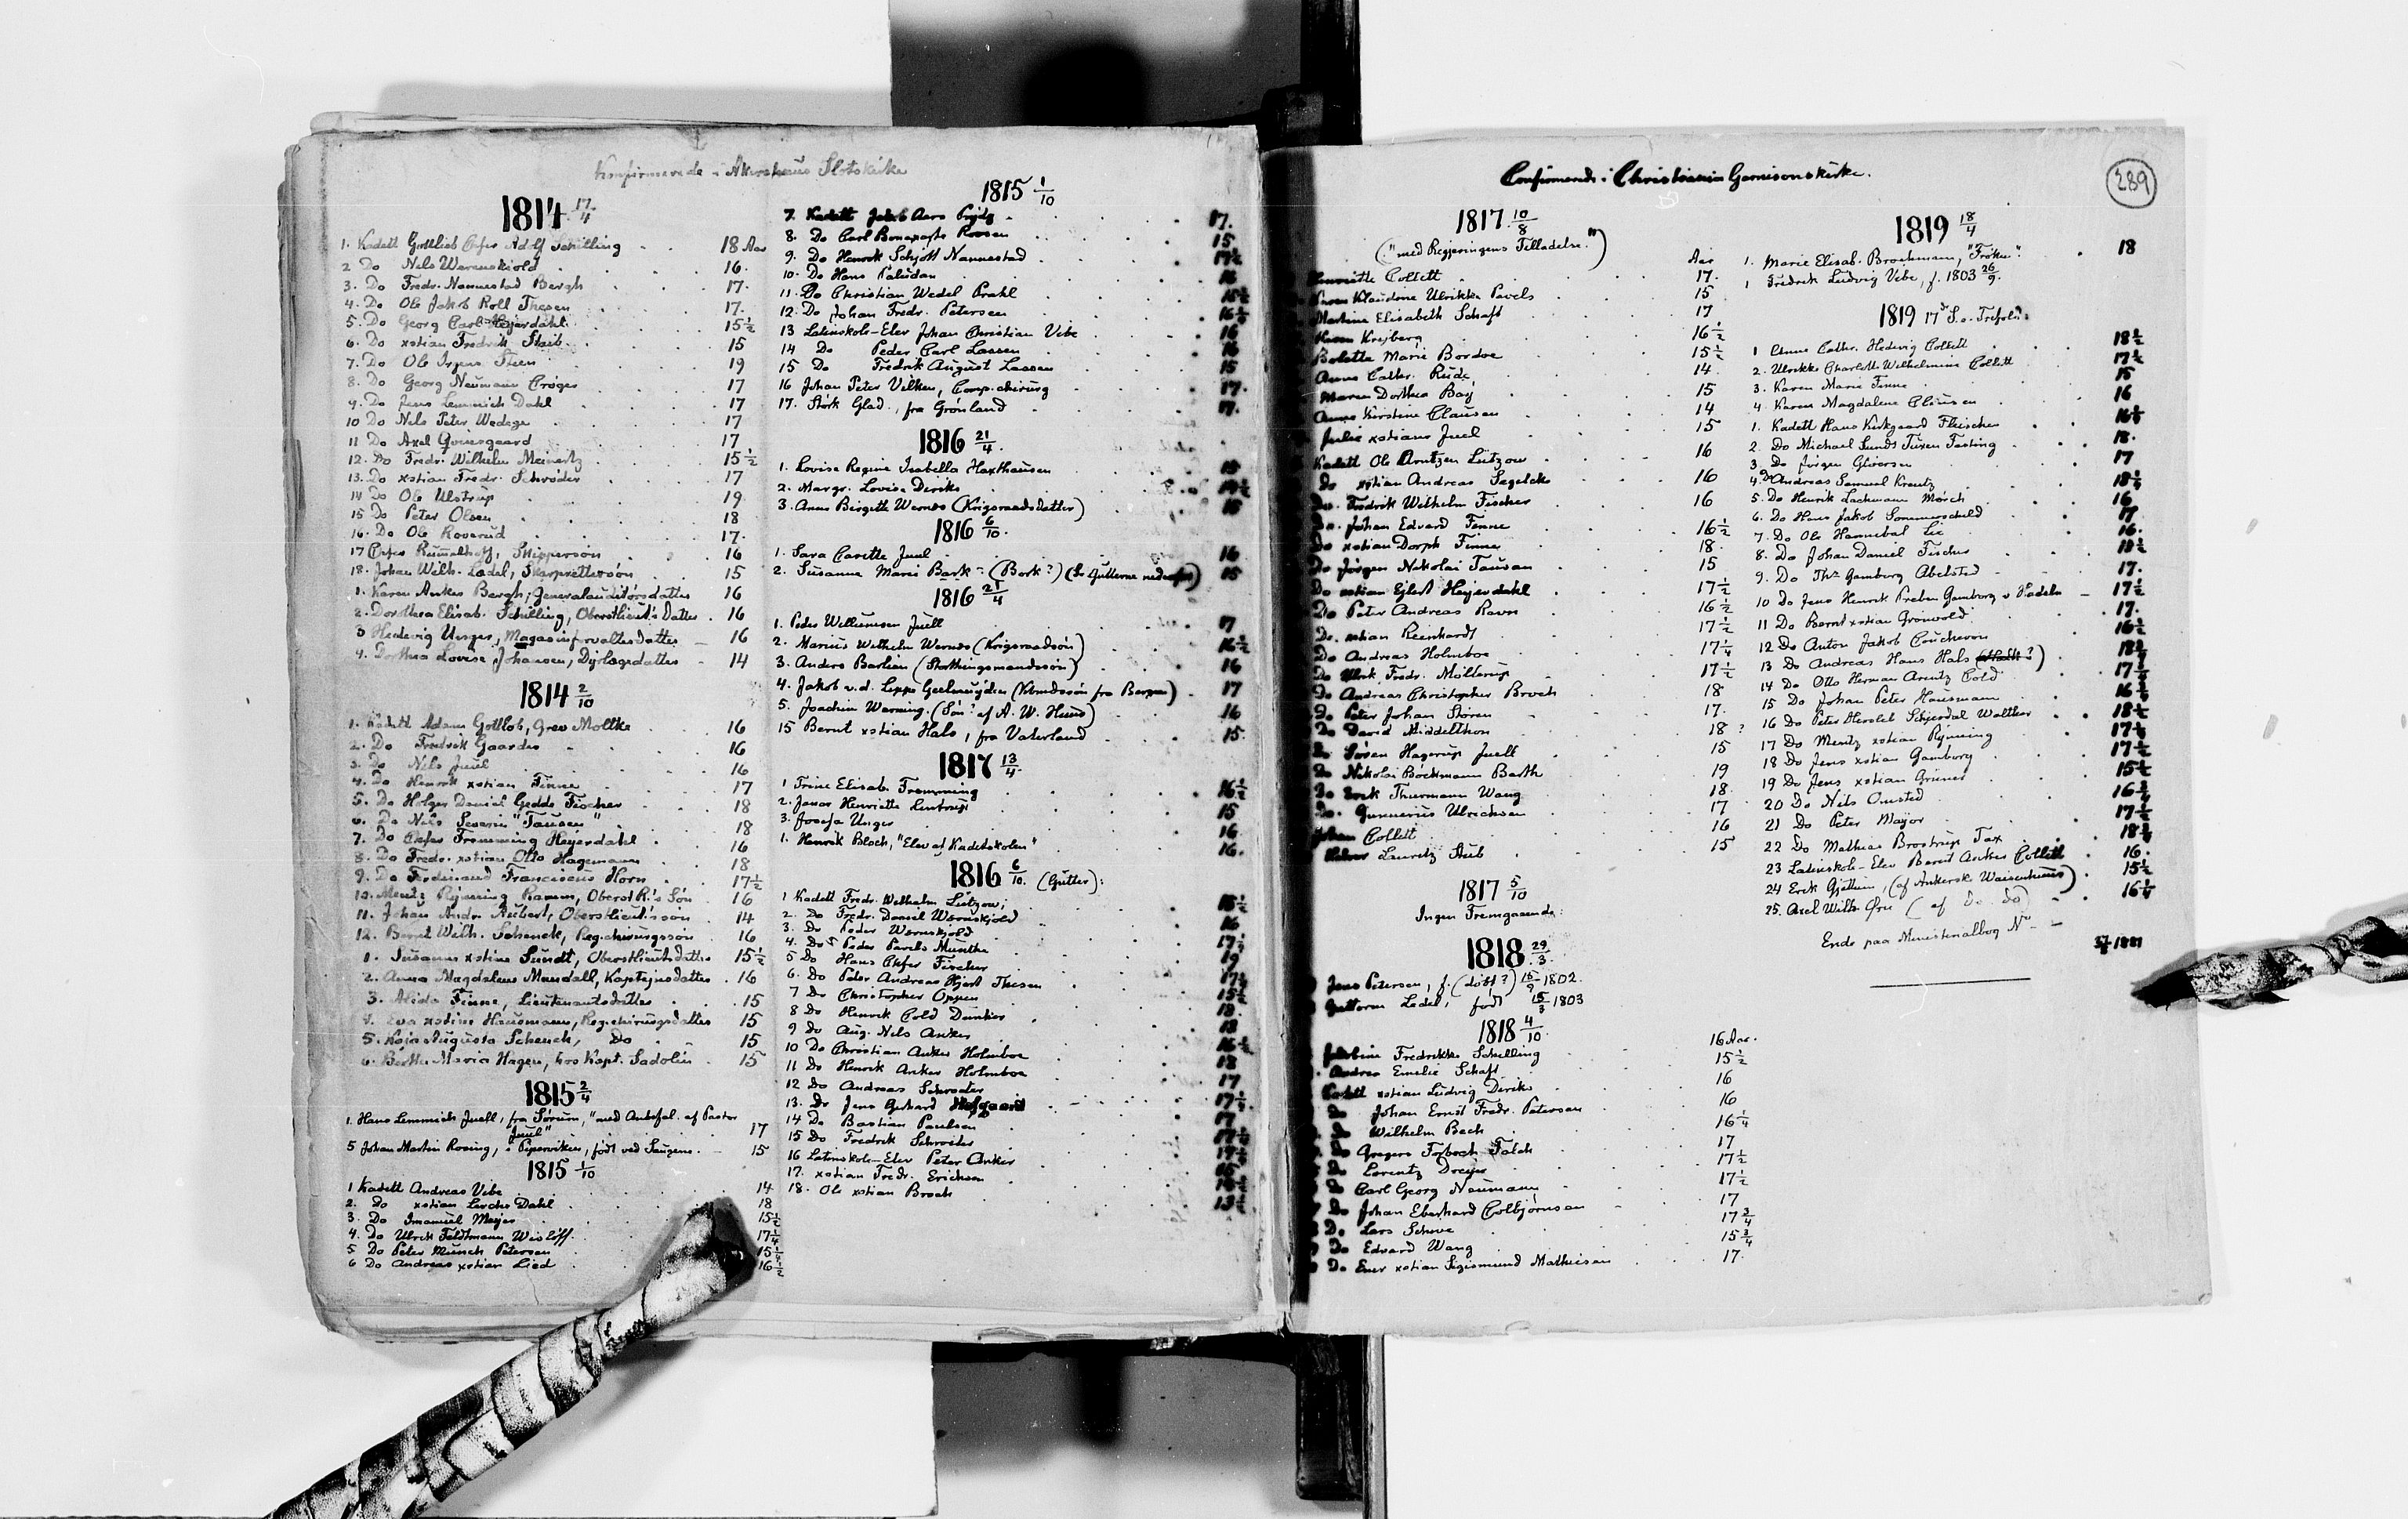 Konfirmerede i Akershus Slotskirke
1814 17/4
1. Kadett Gottlieb Chrfer Adolf Schilling 18 Aar
2 Do Nils Werenskiold 16.
3. Do Fredr. Nannestad Bergh 17.
4. Do Ole Jakob Roll Thesen 17.
5. Do Georg Carl Heyerdahl 15 1/2
6. Do xstian Fredrik Staib 15
7. Do Ole Irgens Steen 19
8. Do Georg Neumann Crøger 17
9. Do Jens Lemmich Dahl 17
10 Do Nils Peter Wedege 17
11 Do Axel Qvinsgaard 17
12. Do Fredr. Wilhelm Meinertz 15 1/2
13. Do xstian Fredr. Schrøder 17
14 Do Ole Ulstrup 19.
15 Do Peter Olsen 18
16. Do Ole Roverud 17.
17 Chrfer Rummelhoff, Skippersøn 16
18. Johan Wilh. Ledel, Skarprettersøn 15
1. Karen Anker Bergh, Generalauditørsdatter 16
2. Dorothea Elisab. Schilling, Oberstlieut's Datter 16
3 Hedevig Unger, Magasinforvaltersdatter 16
4. Dorthea Lovise Johansen, 14
1814 2/10
1. Kadett Adam Gottlob, Grev Moltke 16
2. Do Fredrik Gaarder 16
3. Do Nils Juul 16
4. Do Henrik xstian Finne 17
5. Do Holger Daniel Gedde Fischer 18
6. Do Nils Severin "Tausen" 18
7. Do Chrfer Fremming Heyerdahl 16
8. Do Fredr. xstian Otto Hagemann 18
9. Do Ferdinand Franciscus Horn 17 1/2
10. Mentz Rynning Ramm, Oberst R.'s Søn 16
11. Johan Andr. Aubert, Oberstlieut.'s søn 14
12. Bernt Wilh. Schenck, Reg.chirurgssøn 16
1. Susanne xstine Sundt, Oberstlieutsdatter 15 1/2
2. Anna Magdalena Mandall, Kaptejnsdatter 16
3. Alida Finne, Lieutenantsdatter 15
4. Eva xstine Hausmann, Reg.chirurgsdatter 15
5. Kaja Augusta Schenck, Do 15
6. Berthe Maria Hagen, hos Kapt. Sadolin 15
1815 2/4
1. Hans Lemmich Juell, fra Sørum, "med Anbefal. af Pastor
Juul" 17
5 Johan Martin Rosing, i Pipervviken, født ved Saugene. 15
1815 1/10
1 Kadett Andreas Vibe 14
2. Do xstian Lerche Dahl 18
3. Do Imanuel Meyer 15 1/2
4. Do Ulrik Feldtmann Wislöff 17 1/4
5 Do Peter Munch Petersen 15 1/4
6 Do Andreas xstian Lied 16 1/2
1815 1/10
7. Kadett Jakob Aars Prydz 17.
8. Do Carl Bonaparte Roosen 15
9. Do Henrik Schjøtt Nannestad 17 1/2
10. Do Hans Paludan 16
11. Do Christian Wedel Prahl 15 1/2
12. Do Johan Fredr. Petersen 16 1/2
13 Latinskole-Elev Johan Christian Vibe 16
14 Do Peder Carl Lassen 16
15 Do Fredrik August Lassen 15
16 Johan Peter Vilken, Comp.chirurg 17.
17. Størk Glad, fra Grønland 17.
1816 21/4.
1. Lovise Regine Isabella Haxthausen 15
2. Margr. Lovise Deriks
3. Anna Birgitte Wernes (Krigsraadsdatter) 15
1816 6/10.
1. Sara Cavette Juul 16
2. Susanne Marie Bark (Bork?) (Se Gutterne nedenfor) 15
1816 21/4
1. Peder Willumsen Juell 17
2. Marius Wilhelm Wernes (Krigsraadsøn) 16 1/2
3. Anders Barlien (Storthingsmandssøn) 16
4. Jakob v. d. Lippe Geelmuyden (Kbmdssøn fra Bergen) 17
5. Joachim Werning. (Søn? af A. W. Huus) 16
15 Bernt xstian Hals, fra Vaterland 15.
1817 13/4.
1 Trine Elisab. Fremming 16 1/2
2. Janna Henriette Lentrup 15
3. Josefa Unger 16
1. Henrik Bloch, "Elev af Kadetskolen" 16.
1816 6/10. (Gutter):
1 Kadett Fredr. Wilhelm Lützow; 15 1/2
2. Do Fredr. Daniel Wernskjold 16
3. Do Peder Wernskjold 17 1/2
4. Do Peder Pavels Munthe 19
5 Do Hans Chrfer Fischer
6. Do Peter Andreas Bjerk Thesen
7 Do Christopher Oppen
8 Do Henrik Cold Dunker 18
9 Do Aug. Nils Anker
10 Do Christian Anker Holmboe
11 Do Henrik Anker Holmboe 18
12 Do Andreas Schrøder 17
13. Do Jens Gerhard Hofgaard 17 1/2
14 Do Bastian Paulsen 17
15 Do Fredrik Schrøder
16 Latinskole-Elev Peter Anker
17. xstian Fredr. Erichsen
18. Ole xstian Broch
Confirmerede i Christiania Garnisonskirke.
289
1817 10/8
("med Regjeringens Tilladelse.")
Aar
Henriette Collett 17.
Karen Klaudine Ulrikke Pavels 15
Martine Elisabeth Schaft 17
Karen Krejberg 16 1/2
Bolette Marie Bordoe 15 1/2
Anne Cathr. Rude 14
Maren Dorthea Bay 15
Anne Kirstine Clausen 14
Julie xstiane Juel 15
Kadett Ole Arntzen Lützow 16
Do xstian Andreas Segelcke 16
Do. Fredrik Wilhelm Fischer 16
Do. Johan Edvard Finne 16 1/2
Do xstian Dorph Finne 18.
Do Jørgen Nikolai Tausan 15
Do xstian Ejlert Heyerdahl 17 1/2
Do Peter Andreas Ravn 16 1/2
Do. xstian Reenhardt 17 1/2
Do Andreas Holmboe 17 1/4
Do Ulrik Fredr. Møllerup 17 1/2
Do Andreas Christopher Broch 18
Do Peter Johan Støren 17.
Do David Middelthon 18?
Do Søren Hagerup Juell 15
Do Nikolai Böckmann Barth 19
Do Erik Thurmann Wang 18.
Do. Gunnerius Ulrichsen 17
Johan Collett 16
Halvor Lauritz Aub 15
1817 5/10
Ingen Fremgaaende:
1818 29/3.
Jens Petersen, f. (døbt?) 15/9 1802.
Guttorm Ledel, født 15/3 1803
1818 4/10.
Jakobine Fredrikke Schilling 16 Aar.
Andrea Emelie Schaft 15 1/2
Kadett xstian Ludvig Diriks 16
Do Johan Ernst Fredr. Petersen 16
Do Wilhelm Bach 16 1/4
Do Gregers Forbech Falch 17
Do Lorentz Dreyer 17 1/2
Do Carl Georg Neumann 17 1/2
Do Johan Eberhard Colbjørnsen 17
Do. Lars Scheve 17 3/4
Do Edvard Wang 15 3/4
Do Ener xstian Sigismund Mathiesen 17.
1819 18/4
1. Marie Elisab. Brockmann, "Frøken". 18
1 Fredrik Ludvig Vibe, f. 1803 26/9.
1819 17de S. e. Trefold.:
1 Anne Cathr. Hedevig Collett 18 1/2
2. Ulrikke Charlotte Wilhelmine Collett 17 1/2
3. Karen Marie Finne 15
4. Karen Magdalene Clausen 16
1. Kadett Hans Kirkgaard Fleischer 16 1/2
2. Do Michael Sundt Tuxen Fasting 18.
3. Do Jørgen Gloersen 17
4. Do Andreas Samuel Krentz
5. Do Henrik Lachmann Mørch 16
6. Do Hans Jakob Sommerschield 17
7. Do Ole Hannibal Lie 16.
8. Do Johan Daniel Fischer 18 1/2
9. Do Ths Gamborg Abelsted 17.
10 Do Jens Henrik Preben Gamborg v Hadeln 17 1/2
11 Do Bernt xstian Grönvold 17.
12 Do Anton Jakob Coucheron 16 1/2
13 Do Andreas Hans Hals
14 Do Otto Herman Arentz Cold
15 Do Johan Peter Hausmann
16 Do Peter Hersleb Schjerdal Walther
17 Do Mentz xstian Rynning
18 Do Jens xstian Gamborg 17 1/2
19 Do Jens xstian Grüner 15 1/2
20 Do Nils Onsted
21 Do Peter Mayor 17 1/2
22 Do Mathias Brostrup Tax
23 Latinskole-Elev Bernt Anker Collett 16.
24 Erik Gjethun, (af Ankerske Waisenhuus) 15 1/2
25. Axel Wilh. Øre (af do. do)
Ende paa Ministerialbog No —